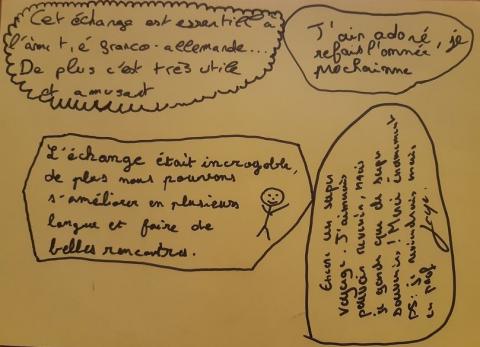 Cet échange est essentiel à
l'âmetié franco-allemande...
De plus c'est très utile
et amusant
J'ain adoré, je
refais l'onnée
prochainne
L'échange était incroyable,
de plus nous pouvons
s'améliorer en plusieurs
langue et faire de
belles rencontres.
Encore un super
voyage. J'aimerais
pouvoir revenir, mais
je garde que de super
souvenirs ! Merci énormément
PS: je reviendrais mais
en prof